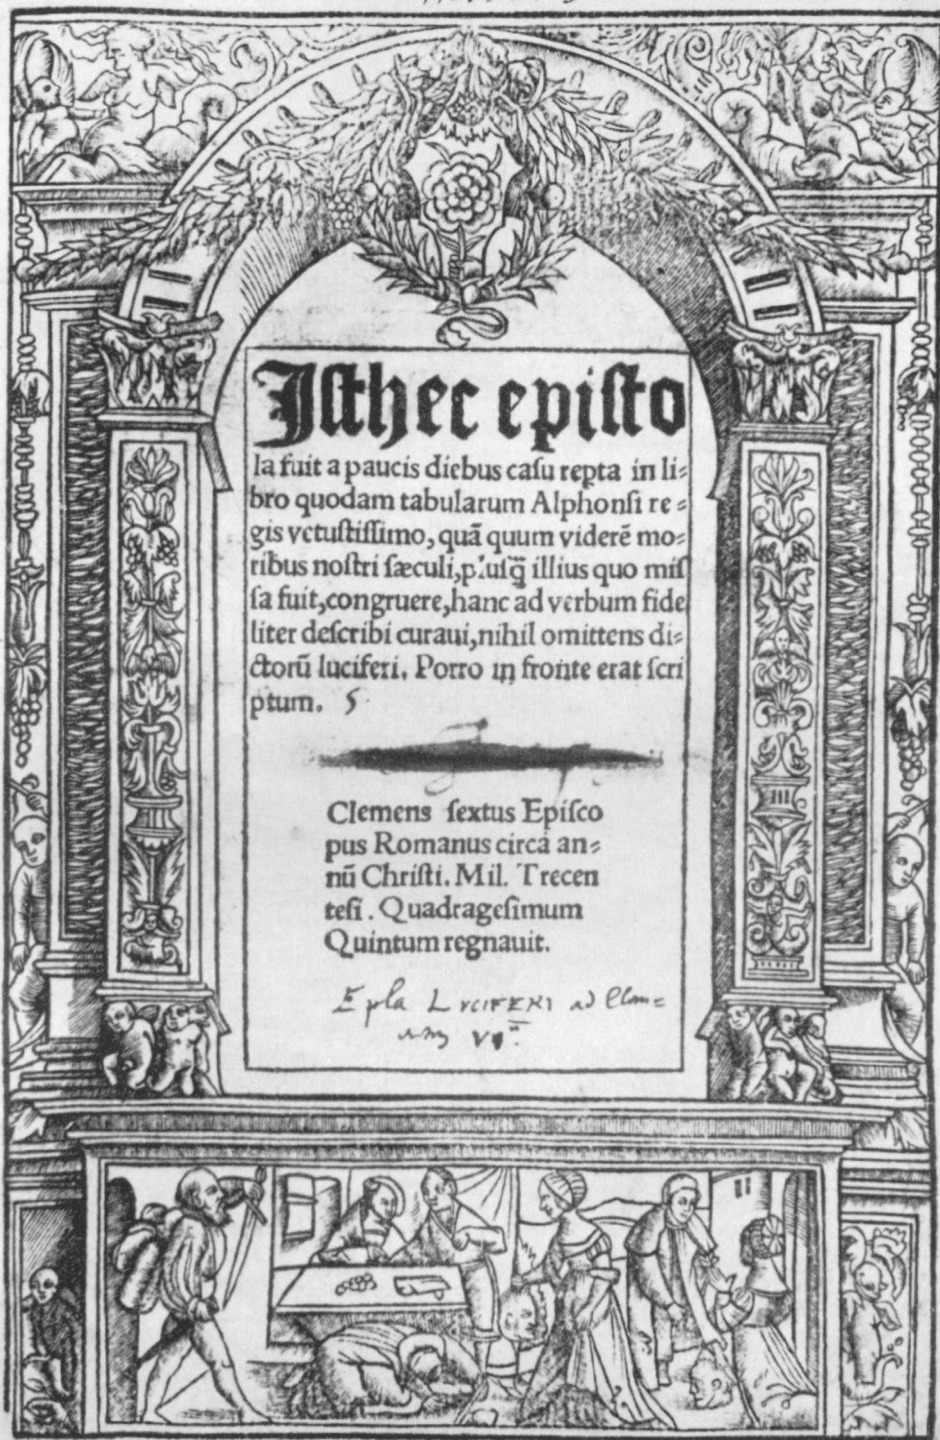 Iſthec epiſto
la fuit a paucis diebus caſu repta in li⸗
bro quodam tabularum Alphonſi re⸗
gis vetuſtiſſimo, quā quum viderē mo⸗
ribus noſtri ſæculi, pluſq̄ illius quo miſ
ſa fuit, congruere, hanc ad verbum fide
liter deſcribi curaui, nihil omittens di⸗
ctorū luciferi. Porro in fronte erat ſcri
ptum.
Clemens ſextus Epiſco
pus Romanus circa an⸗
nū Chriſti. Mil. Trecen
teſi. Quadrageſimum
Quintum regnauit.
Epla LUCIFERI ad Clem=
VI